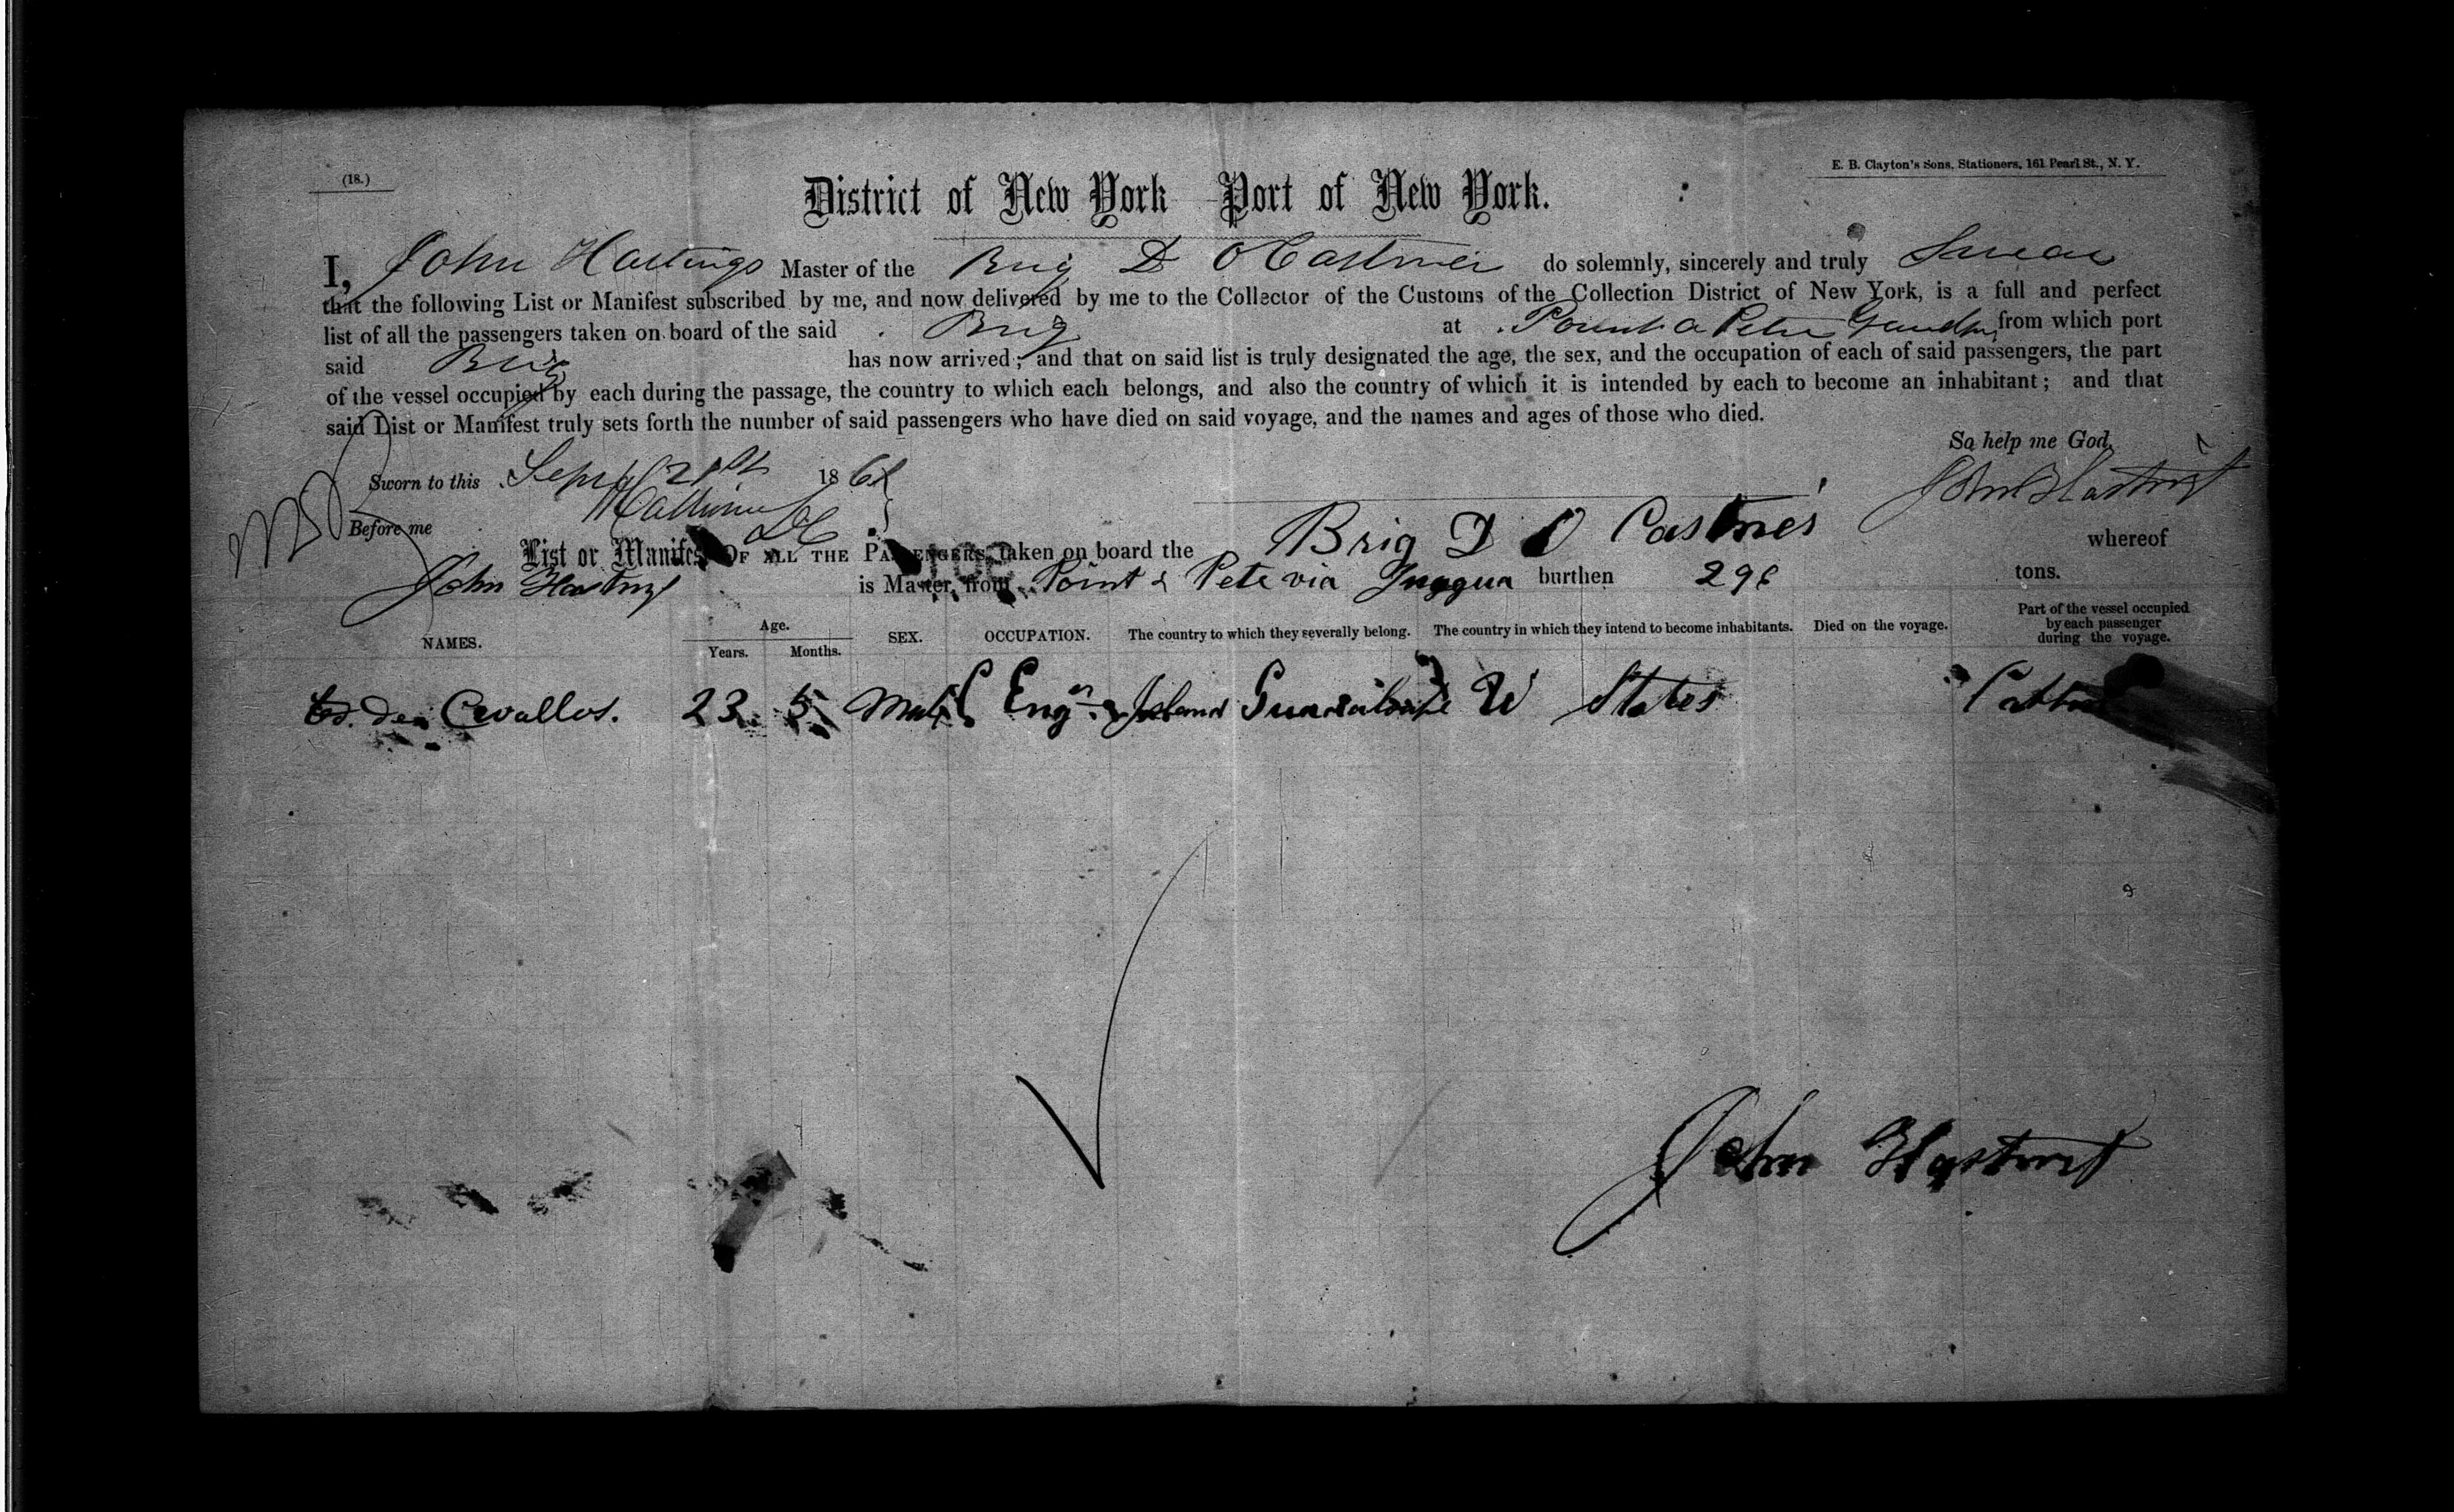 (18.)
E. B. Clayton's Sons, Stationers, 161 Pearl St., N. Y.
District of New York Port of New York.
I, John Hastings Master of the Brig D O Castner do solemnly, sincerely and truly Swear
that the following List or Manifest subscribed by me, and now delivered by me to the Collector of the Customs of the Collection District of New York, is a full and perfect
list of all the passengers taken on board of the said Brig at Point a Petre from which port
said Brig has now arrived; and that on said list is truly designated the age, the sex, and the occupation of each of said passengers, the part
of the vessel occupied by each during the passage, the country to which each belongs, and also the country of which it is intended by each to become an inhabitant; and that
said List or Manifest truly sets forth the number of said passengers who have died on said voyage, and the names and ages of those who died.
So help me God,
Sworn to this Sept 21st 186
John Hastings
Before me
List or Manifest OF ALL THE PASSENGERS, taken on board the Brig D O Castner whereof
John Hastings is Master, from Point & Pete via burthen 296 tons.
NAMES.
Age.
Years.
Months.
SEX.
OCCUPATION.
The country to which they severally belong.
The country in which they intend to become inhabitants.
Died on the voyage.
Part of the vessel occupied
by each passenger
during the voyage.
Cevallos. 23 5 Male C Engr Island U States
John Hastings